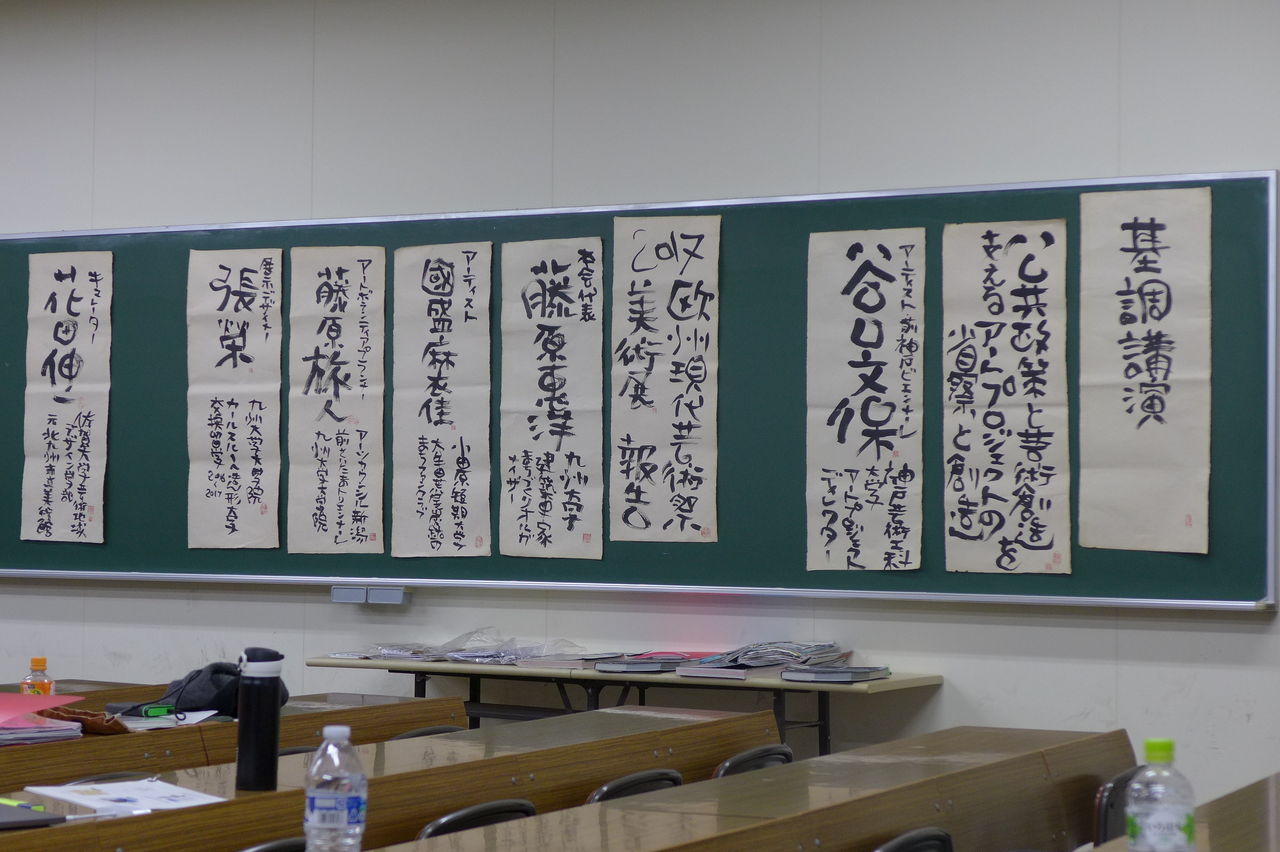 基調講演
公共政策と芸術創造を
支えるアートプロジェクトの
省察と創造
アーティスト 前神戸ビエンナーレ
谷口文保
神戸芸術工科
大学
アートプロジェクト
ディレクター
欧州現代芸術祭
美術展 報告
教会代表
藤原惠洋
九州大学
建築史家
まちづくりオルガ
ナイザー
アーティスト
國盛麻衣佳
小田原短期大学
アートボランティアプランナー
藤原旅人
アーツカウンシル新潟
前さいたまトリエンナーレ
九州大学大学院
展示デザイナー
張榮
九州大学大学院
カールスルーエ造形大学
交換留学 2016〜
2017
キュレーター
花田伸一
佐賀大学芸術地域
デザイン学部
元北九州市立美術館